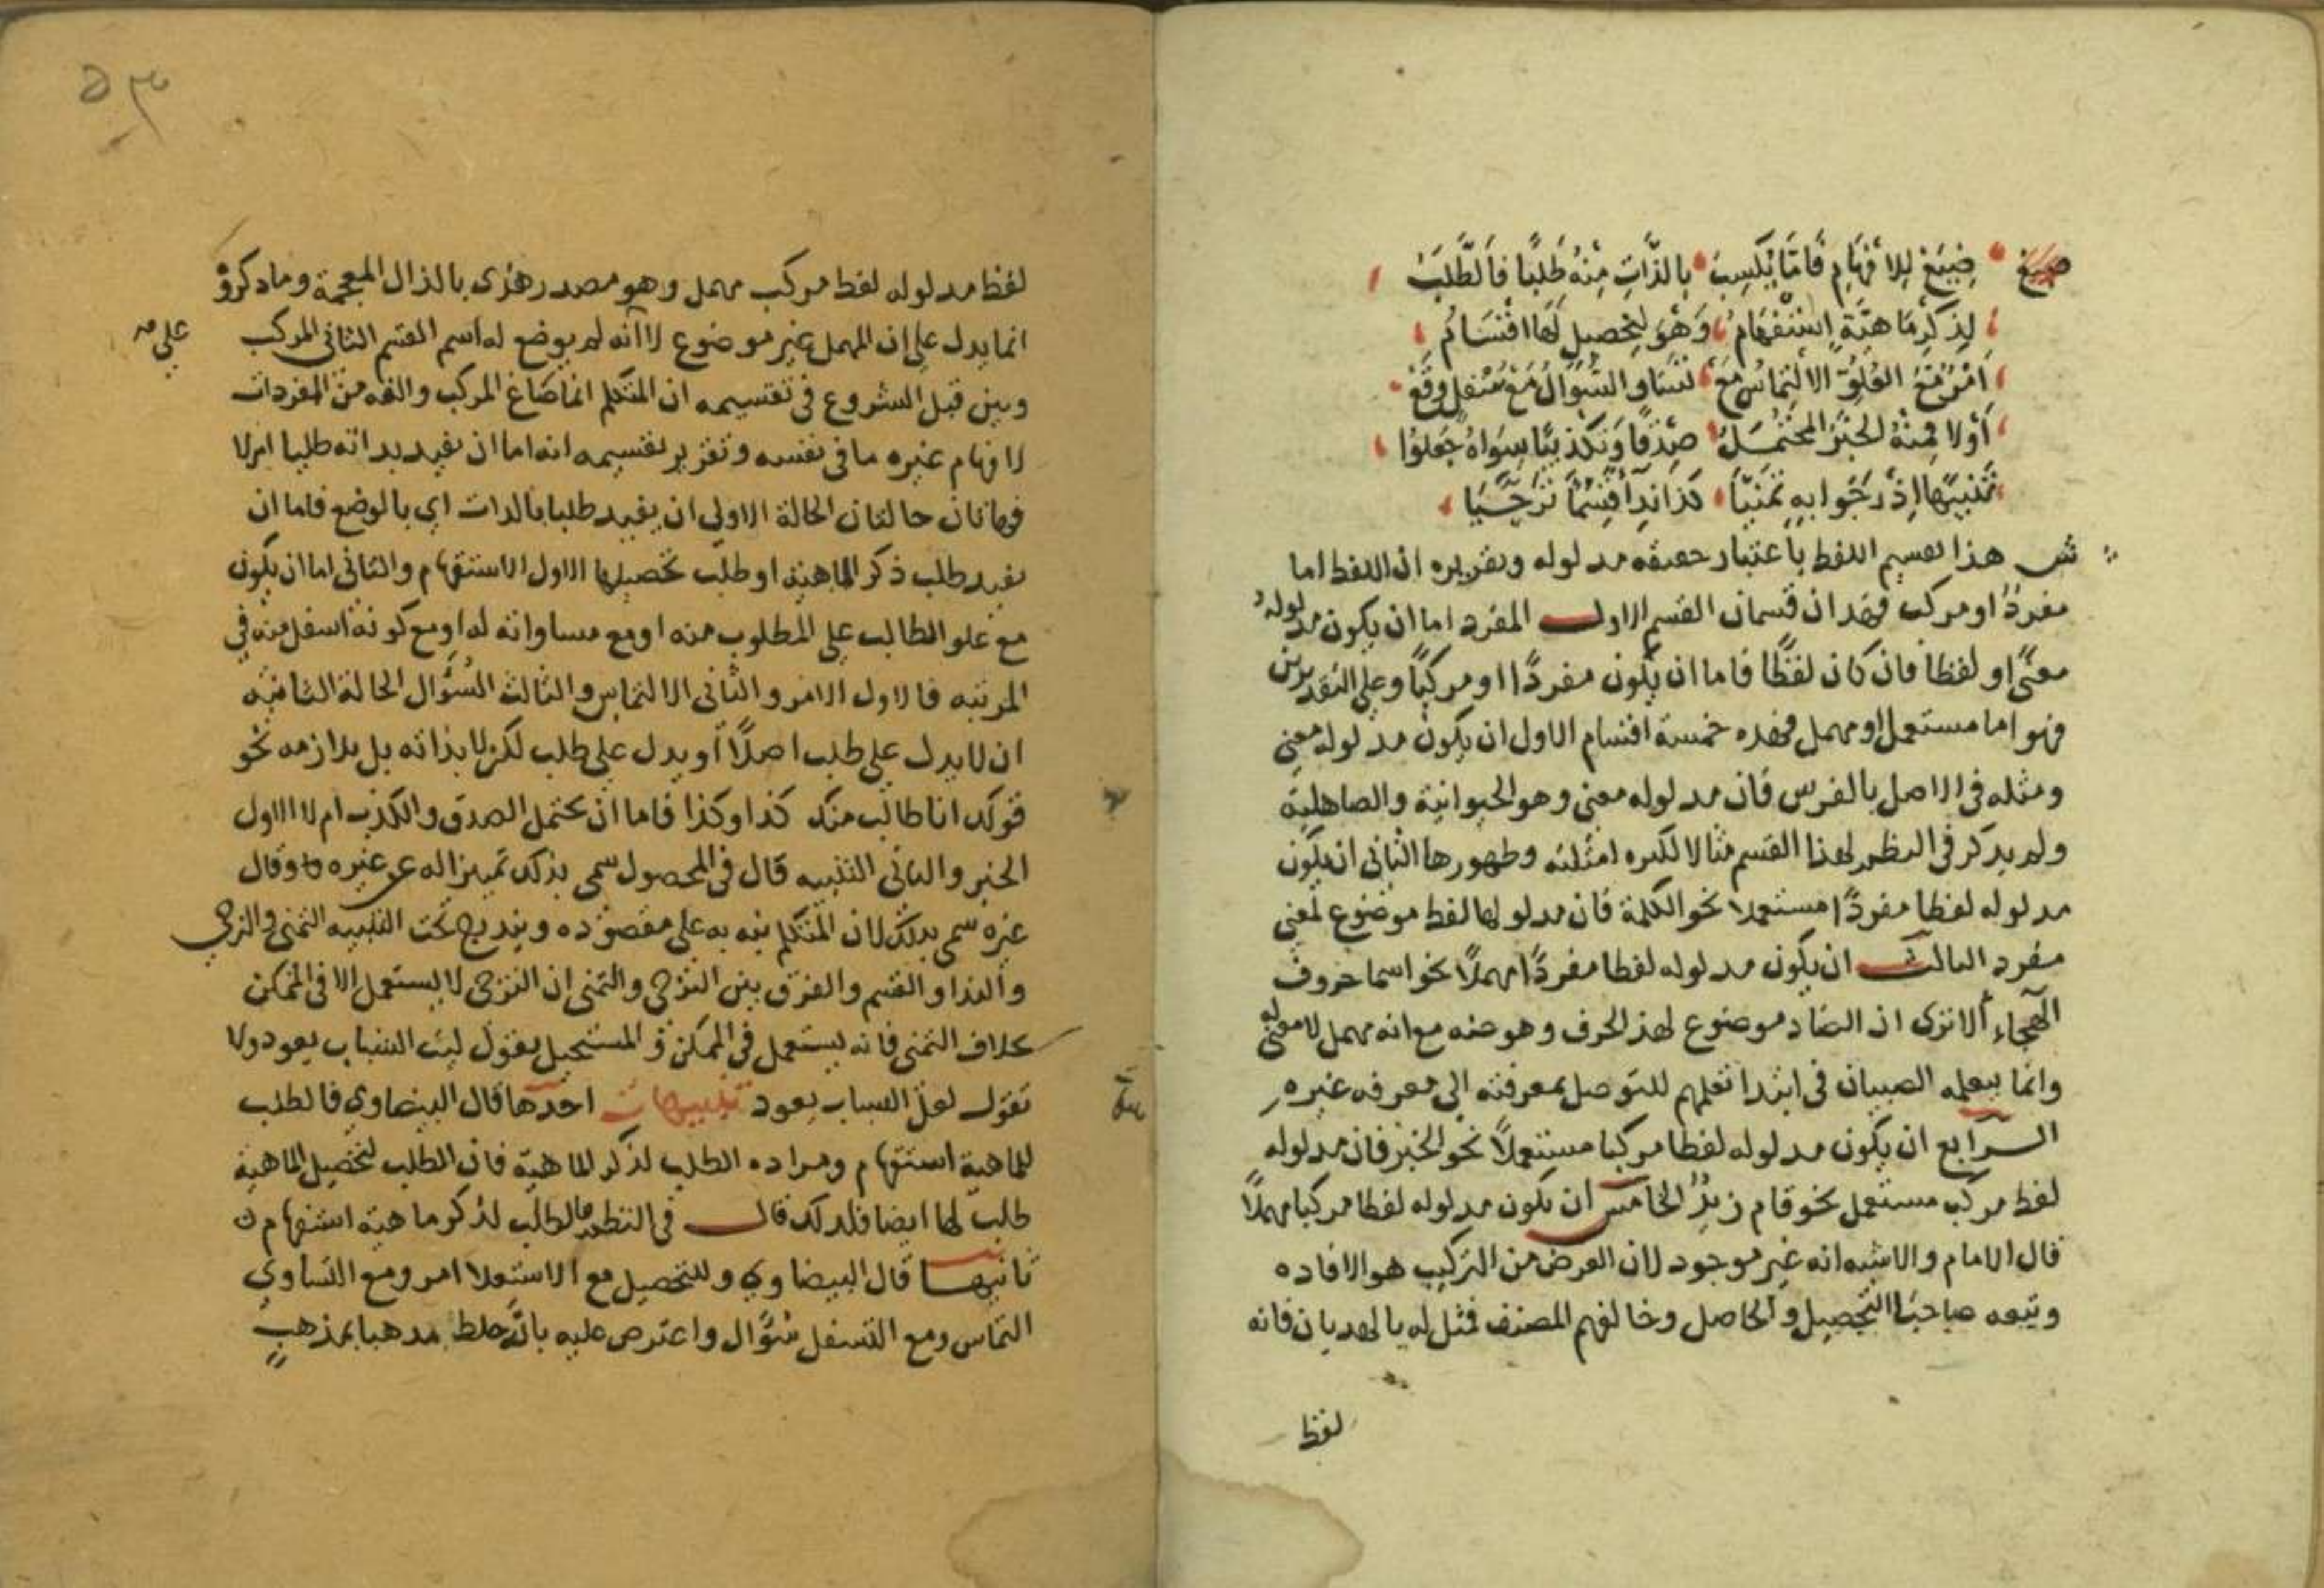 صيغ صيغ للافهام فاما يكسب بالذات منه طلبا فالطلب
لذكر ماهية استفهام وهو لتحصيل لها اقتسام
امر مع العلو الالتماس مع تساو السؤال مع سفل وقع
أولا فمنه الخبر المحتمل صدقا وتكذيبا سواه جعلوا
تنبيها إذ رجوا به تمنيا كذا ندا قسما ترجيا
ش هذا تقسيم اللفظ باعتبار حقيقه مدلوله وتقريره ان اللفظ اما
مفرد او مركب فهذان قسمان القسم الاول المفرد اما ان يكون مدلوله
معنى او لفظا فان كان لفظا فاما ان يكون مفردا او مركبا وعلى التقديرين
فهو اما مستعمل او مهمل فهذه خمسة اقسام الاول ان يكون مدلوله معنى
ومثله في الاصل بالفرس فان مدلوله معنى وهو الحيوانية والصاهلية
ولم يذكر في النظم لهذا القسم مثالا لكثره امثلته وظهورها الثاني ان يكون
مدلوله لفظا مفردا مستعملا نحو الكلمة فان مدلولها لفظ موضوع لمعنى
مفرد الثالث ان يكون مدلوله لفظا مفردا مهملا نحو اسما حروف
الهجاء ألا ترى ان الضاد موضوع لهذ الحرف وهو ضه مع انه مهمل لا معنى له
وانما يتعلمه الصبيان في ابتدا تعلمهم للتوصل بمعرفته الى معرفه غيره
الرابع ان يكون مدلوله لفظا مركبا مستعملا نحو الخبر فان مدلوله
لفظ مركب مستعمل نحو قام زيد الخامس ان يكون مدلوله لفظا مركبا مهملا
قال الامام والاشبه انه غير موجود لان الغرض من التركيب هو الافاده
وتبعه صاحبا التحصيل والحاصل وخالفهم المصنف فمثل له بالهذيان فانه
لفظ
٥٣
لفظ مدلوله لفظ مركب مهمل وهو مصدر هذى بالذال المعجمة وما ذكروه
انما يدل على ان المهمل غير موضوع لا انه لم يوضع له اسم القسم الثاني المركب
وبين قبل الشروع في تقسيمه ان المتكلم انما صاغ المركب والفه من المفردات
لافهام غيره ما في نفسه وتقرير تقسيمه انه اما ان يفيد بذاته طلبا ام لا
فهاتان حالتان الحالة الاولى ان يفيد طلبا بالذات اي بالوضع فاما ان
يفيد طلب ذكر الماهية او طلب تحصيلها الاول الاستفهام والثاني اما ان يكون
مع علو الطالب على المطلوب منه او مع مساواته له او مع كونه اسفل منه في
المرتبه فالاول الامر والثاني الالتماس والثالث السؤال الحالة الثانية
ان لا يدل على طلب اصلا أو يدل على طلب لكن لا بذاته بل بلازمه نحو
قولك انا طالب منك كذا وكذا فاما ان يحتمل الصدق والكذب ام لا الاول
الخبر والثاني التنبيه قال في المحصول سمي بذلك تمييزا له عن غيره وقال
غيره سمي بذلك لان المتكلم نبه به على مقصوده ويندرج تحت التنبيه التمني والترجي
والندا والقسم والفرق بين الترجي والتمني ان الترجي لا يستعمل الا في الممكن
بخلاف التمني فانه يستعمل في الممكن والمستحيل يقول ليت الشباب يعود ولا
تقول لعل الشباب يعود تنبيهات احدها قال البيضاوي فالطلب
للماهية استفهام ومراده الطلب لذكر الماهية فان الطلب لتحصيل الماهية
طلب لها ايضا فلذلك قال في النظم فالطلب لذكر ماهية استفهام
ثانيها قال البيضاوي وللتحصيل مع الاستعلا امر ومع التساوي
التماس ومع التسفل سؤال واعترض عليه بانه خلط مذهبا بمذهب